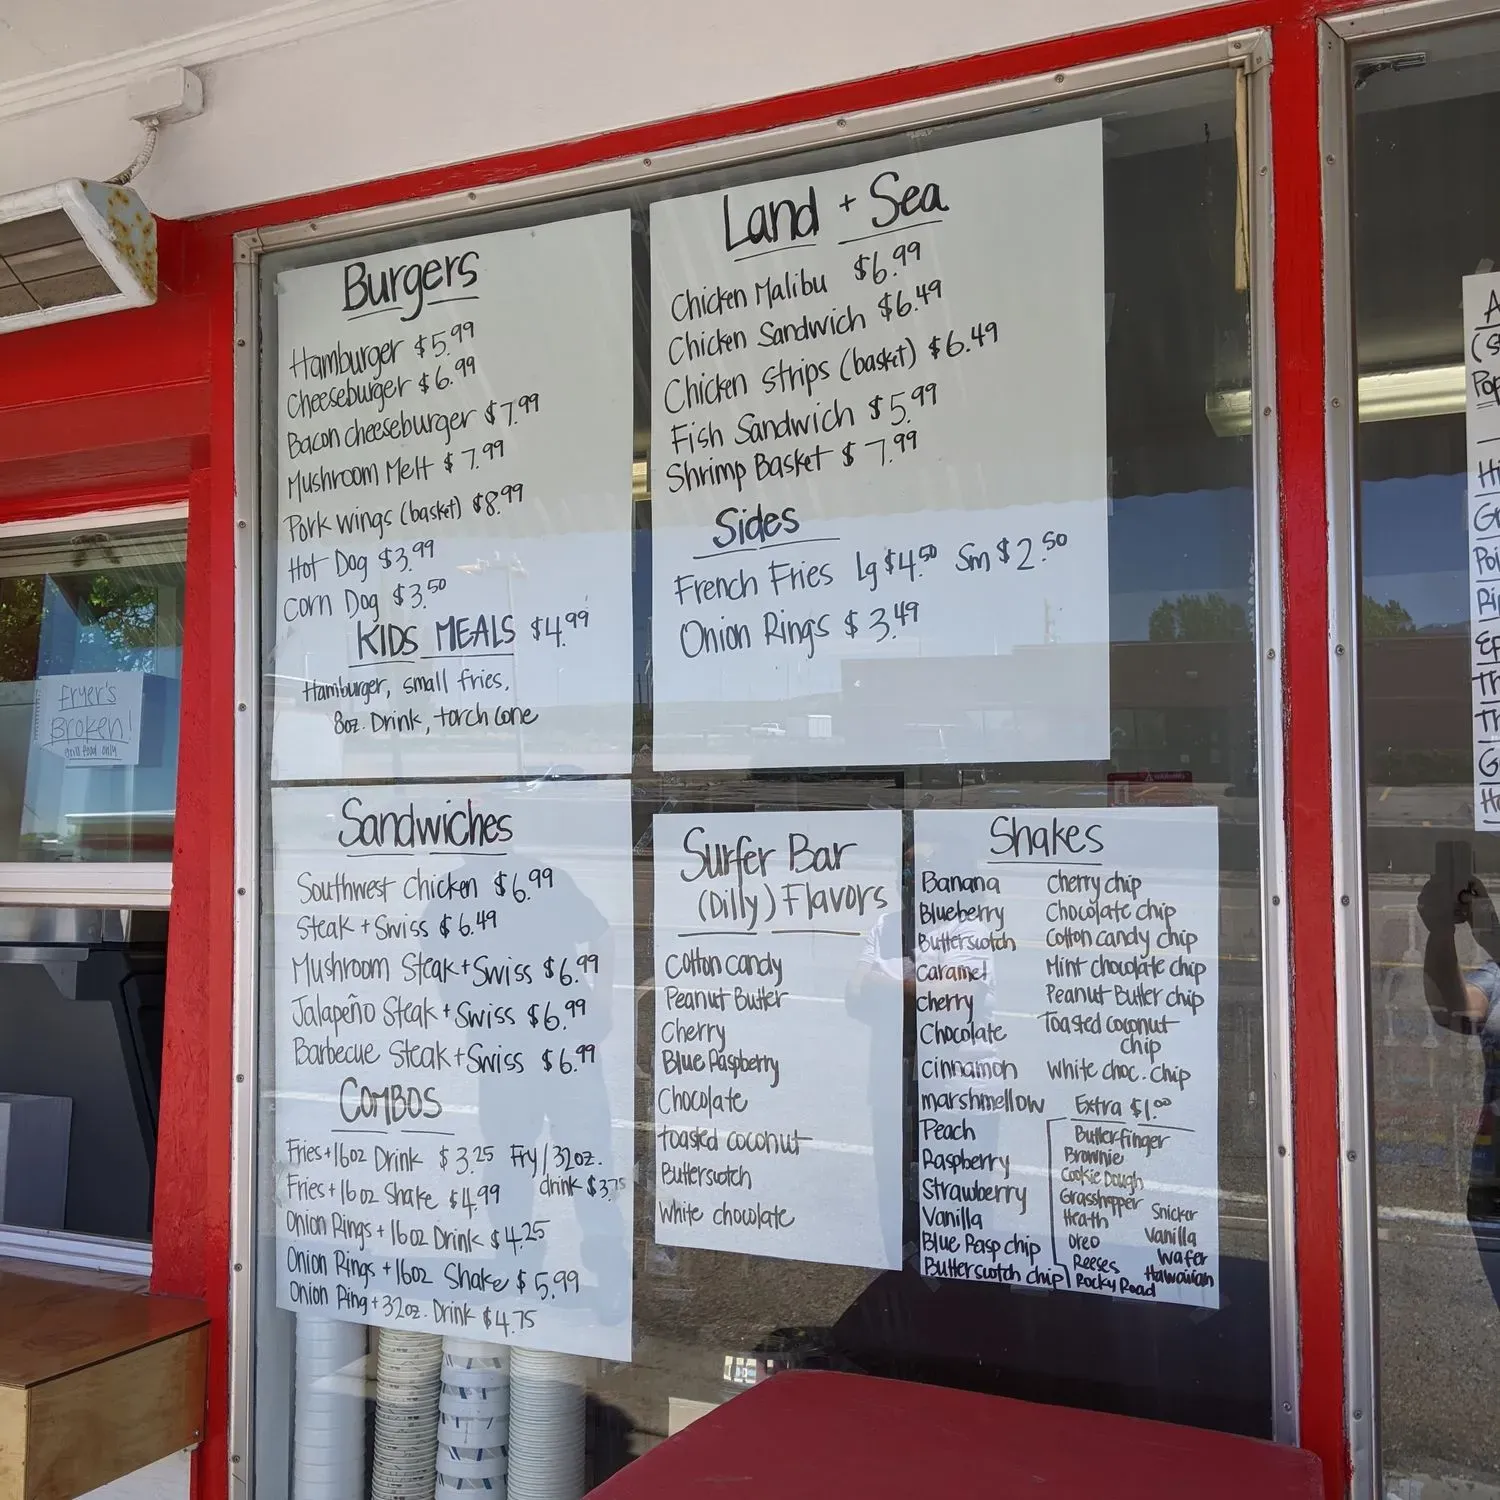 Fryer's
Broken!
Grill food only
Burgers
Hamburger $5.99
Cheeseburger $6.99
Bacon cheeseburger $7.99
Mushroom Melt $7.99
Pork wings (basket) $8.99
Hot Dog $3.99
Corn Dog $3.50
KIDS MEALS $4.99
Hamburger, small fries,
8oz. Drink, torch cone
Land + Sea
Chicken Malibu $6.99
Chicken Sandwich $6.49
Chicken strips (basket) $6.49
Fish Sandwich $5.99
Shrimp Basket $7.99
Sides
French Fries Lg $4.50 Sm $2.50
Onion Rings $3.49
Sandwiches
Southwest Chicken $6.99
Steak + Swiss $6.49
Mushroom Steak + Swiss $6.99
Jalapeño Steak + Swiss $6.99
Barbecue Steak + Swiss $6.99
COMBOS
Fries + 16oz Drink $3.25 Fry / 32oz.
drink $3.75
Fries + 16oz Shake $4.99
Onion Rings + 16oz Drink $4.25
Onion Rings + 16oz Shake $5.99
Onion Ring + 32oz. Drink $4.75
Surfer Bar
(Dilly) Flavors
Cotton candy
Peanut Butter
Cherry
Blue Raspberry
Chocolate
toasted coconut
Butterscotch
White chocolate
Shakes
Banana
Blueberry
Butterscotch
Caramel
Cherry
Chocolate
Cinnamon
marshmellow
Peach
Raspberry
Strawberry
Vanilla
Blue Rasp chip
Butterscotch chip
Cherry chip
Chocolate chip
Cotton candy chip
Mint chocolate chip
Peanut Butter chip
Toasted coconut
chip
White choc. chip
Extra $1.00
Butterfinger
Brownie
Cookie Dough
Grasshopper
Heath
Oreo
Reeses
Rocky Road
Snicker
Vanilla
Wafer
Hawaiian